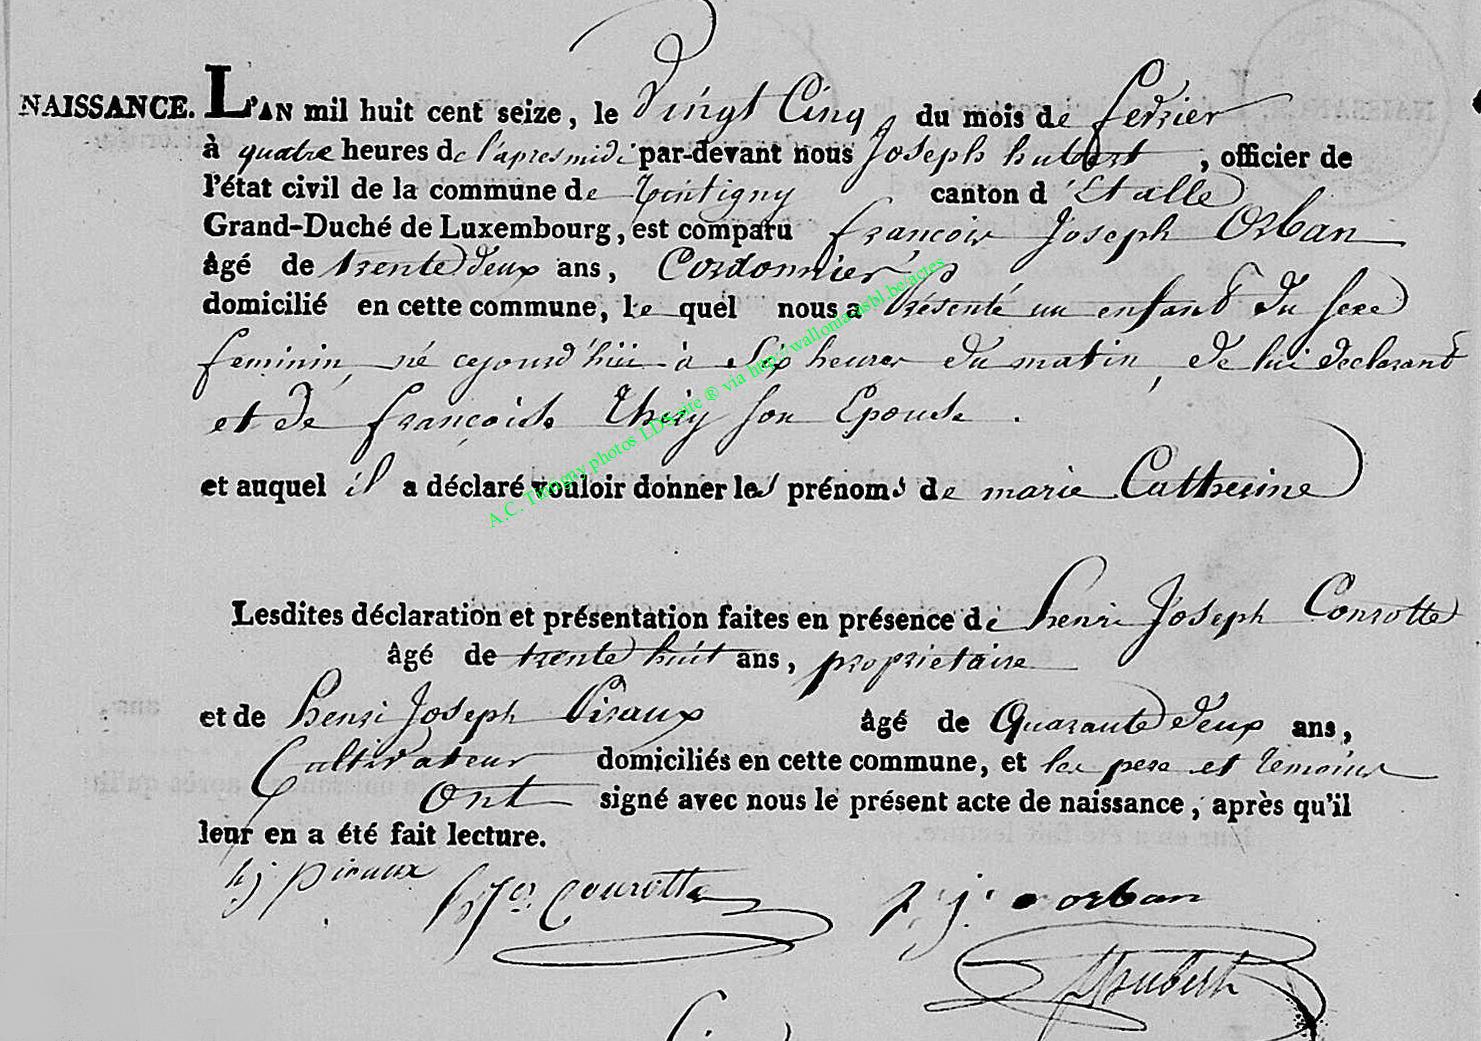 NAISSANCE. L'AN mil huit cent seize, le Vingt Cinq du mois de fevrier
à quatre heures de l'apresmidi par-devant nous Joseph hubert, officier de
l'état civil de la commune de Tintigny canton d'Etalle
Grand-Duché de Luxembourg, est comparu françois Joseph Orban
âgé de trente deux ans, Cordonnier,
domicilié en cette commune, le quel nous a Présenté un enfant du sexe
feminin, né cejourd'hui à Six heures du matin, de lui declarant
et de françoise Thiry son Epouse.
et auquel il a déclaré vouloir donner les prénoms de marie Catherine
A.C. Tintigny photos LDSsite ® via http://wallonia-asbl.be/actes
Lesdites déclaration et présentation faites en présence de henri Joseph Conrotte
âgé de trente huit ans, proprietaire
et de henri Joseph Piraux âgé de Quarante deux ans,
Cultivateur domiciliés en cette commune, et les pere et temoins
Ont signé avec nous le présent acte de naissance, après qu'il
leur en a été fait lecture.
h j piraux Conrotte f. j. orban
Hubert